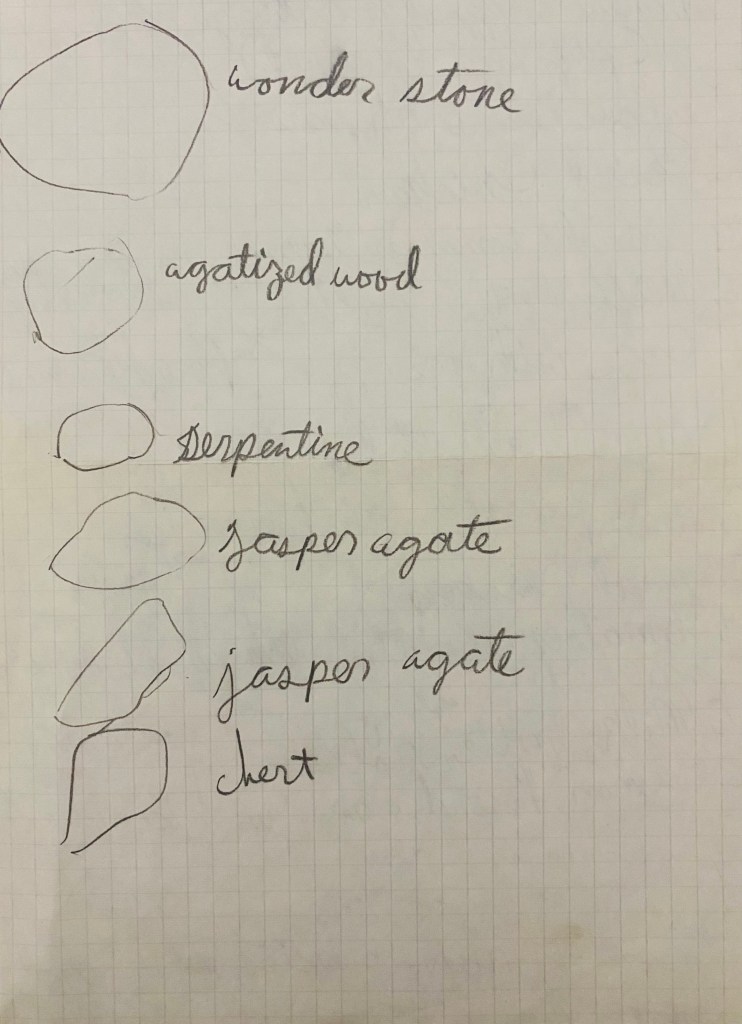 wonder stone
agatized wood
Serpentine
Jasper agate
jasper agate
chert